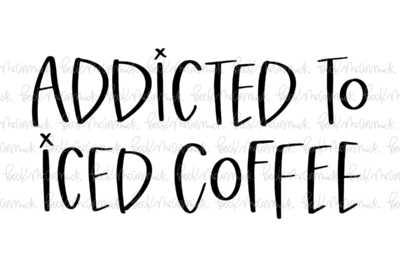 ADDICTED TO
iCED COFFEE